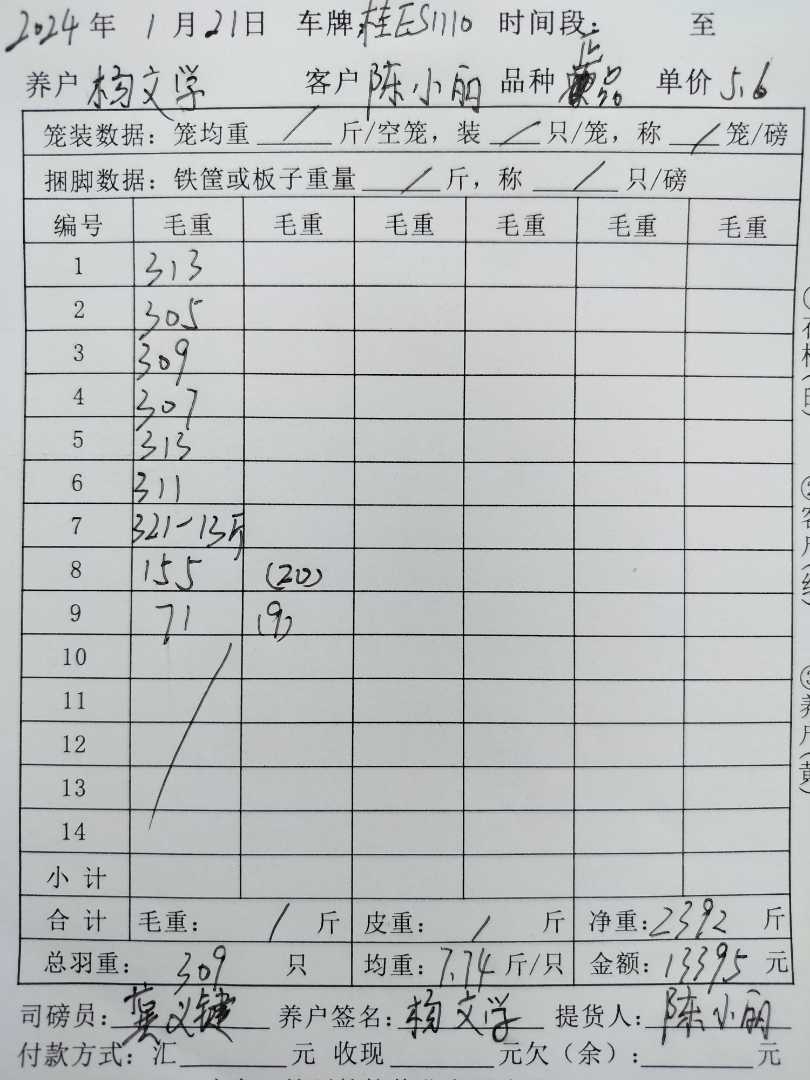 2024年 1月21日 车牌:桂ES1110 时间段: 至
养户 杨文学 客户 陈小丽 品种 正品 单价 5.6
笼装数据:笼均重 / 斤/空笼,装 / 只/笼,称 / 笼/磅
捆脚数据:铁筐或板子重量 / 斤,称 / 只/磅
编号 毛重 毛重 毛重 毛重 毛重 毛重
1 313
2 305
3 309
4 307
5 313
6 311
7 321-13斤
8 155 (20)
9 71 (9)
10
11
12
13
14
小计
合计 毛重: / 斤 皮重: / 斤 净重:2392 斤
总羽重: 309 只 均重:7.74 斤/只 金额:13395 元
司磅员:莫义键 养户签名:杨文学 提货人:陈小丽
付款方式:汇 元 收现 元欠(余): 元
客户(红)
养户(黄)